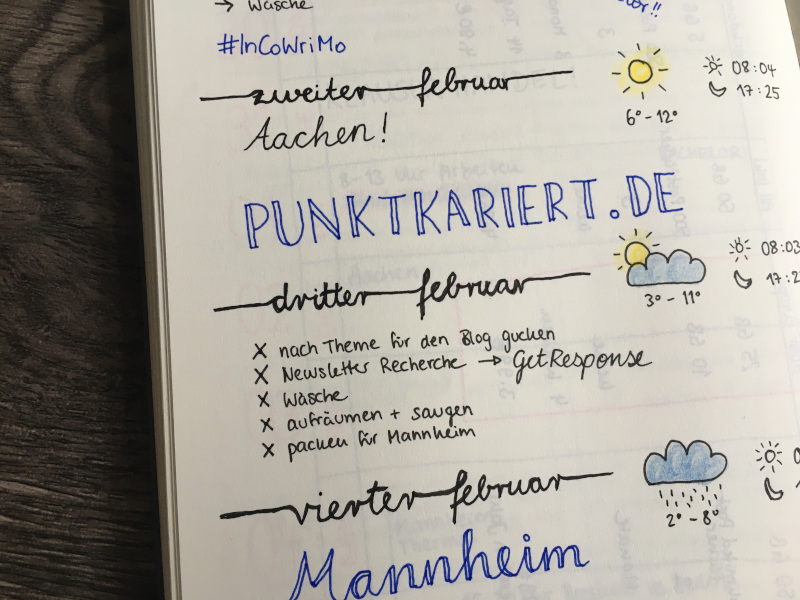 → Wäsche
#InCoWriMo
zweiter februar
08:04
17:25
6° - 12°
Aachen!
PUNKTKARIERT.DE
dritter februar
08:03
3° - 11°
x nach Theme für den Blog gucken
x Newsletter Recherche → GetResponse
x Wäsche
x aufräumen + saugen
x packen für Mannheim
vierter februar
2° - 8°
Mannheim